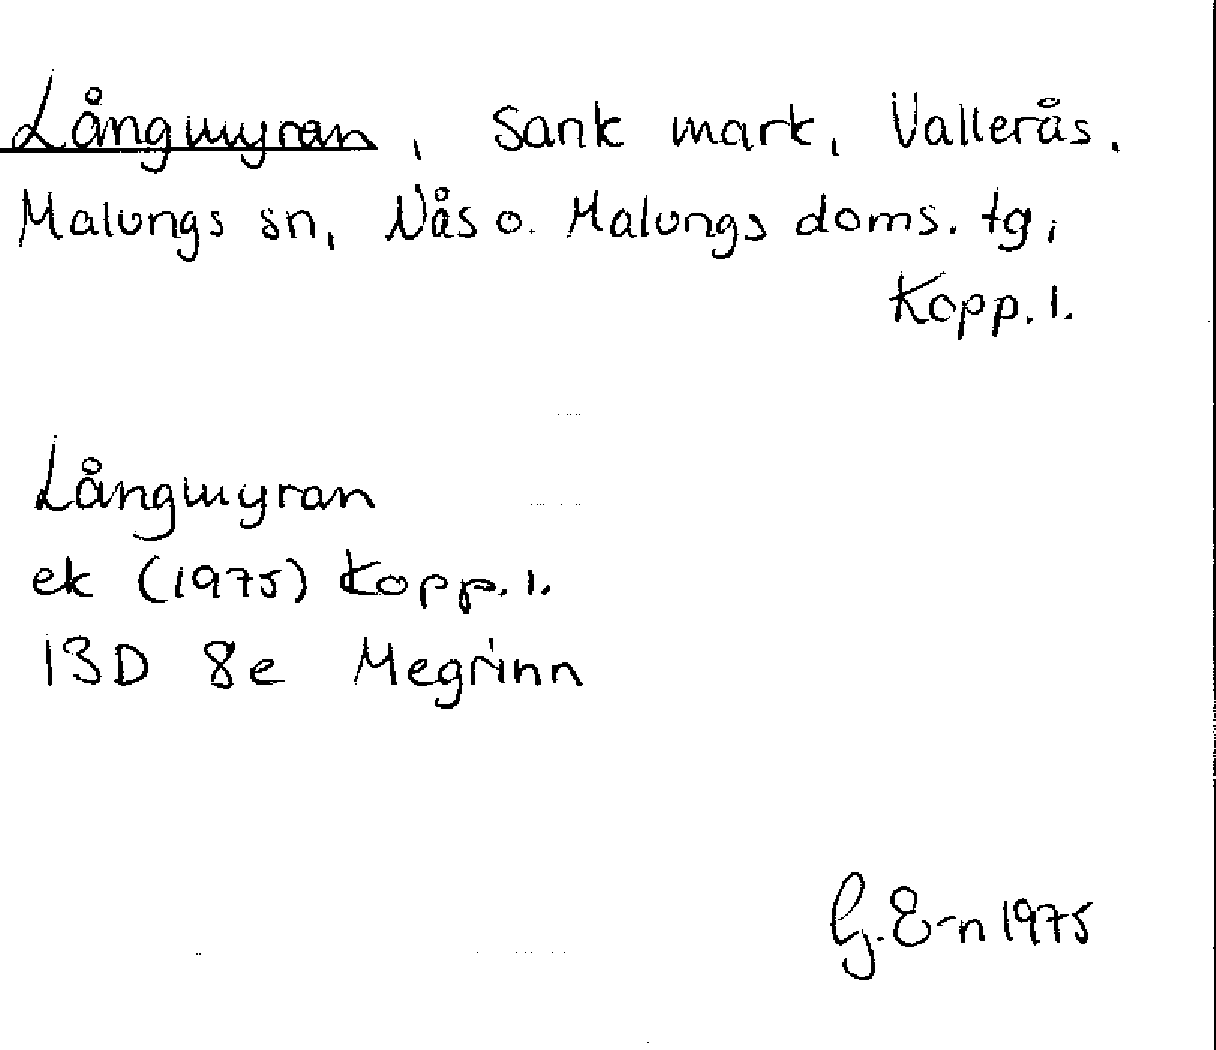 Långmyran, Sank mark, Vallerås.
Malungs sn, Nås o. Malungs doms. tg,
Kopp. l.
Långmyran
ek (1975) Kopp. l.
13D 8e Megrinn
G. E-n 1975